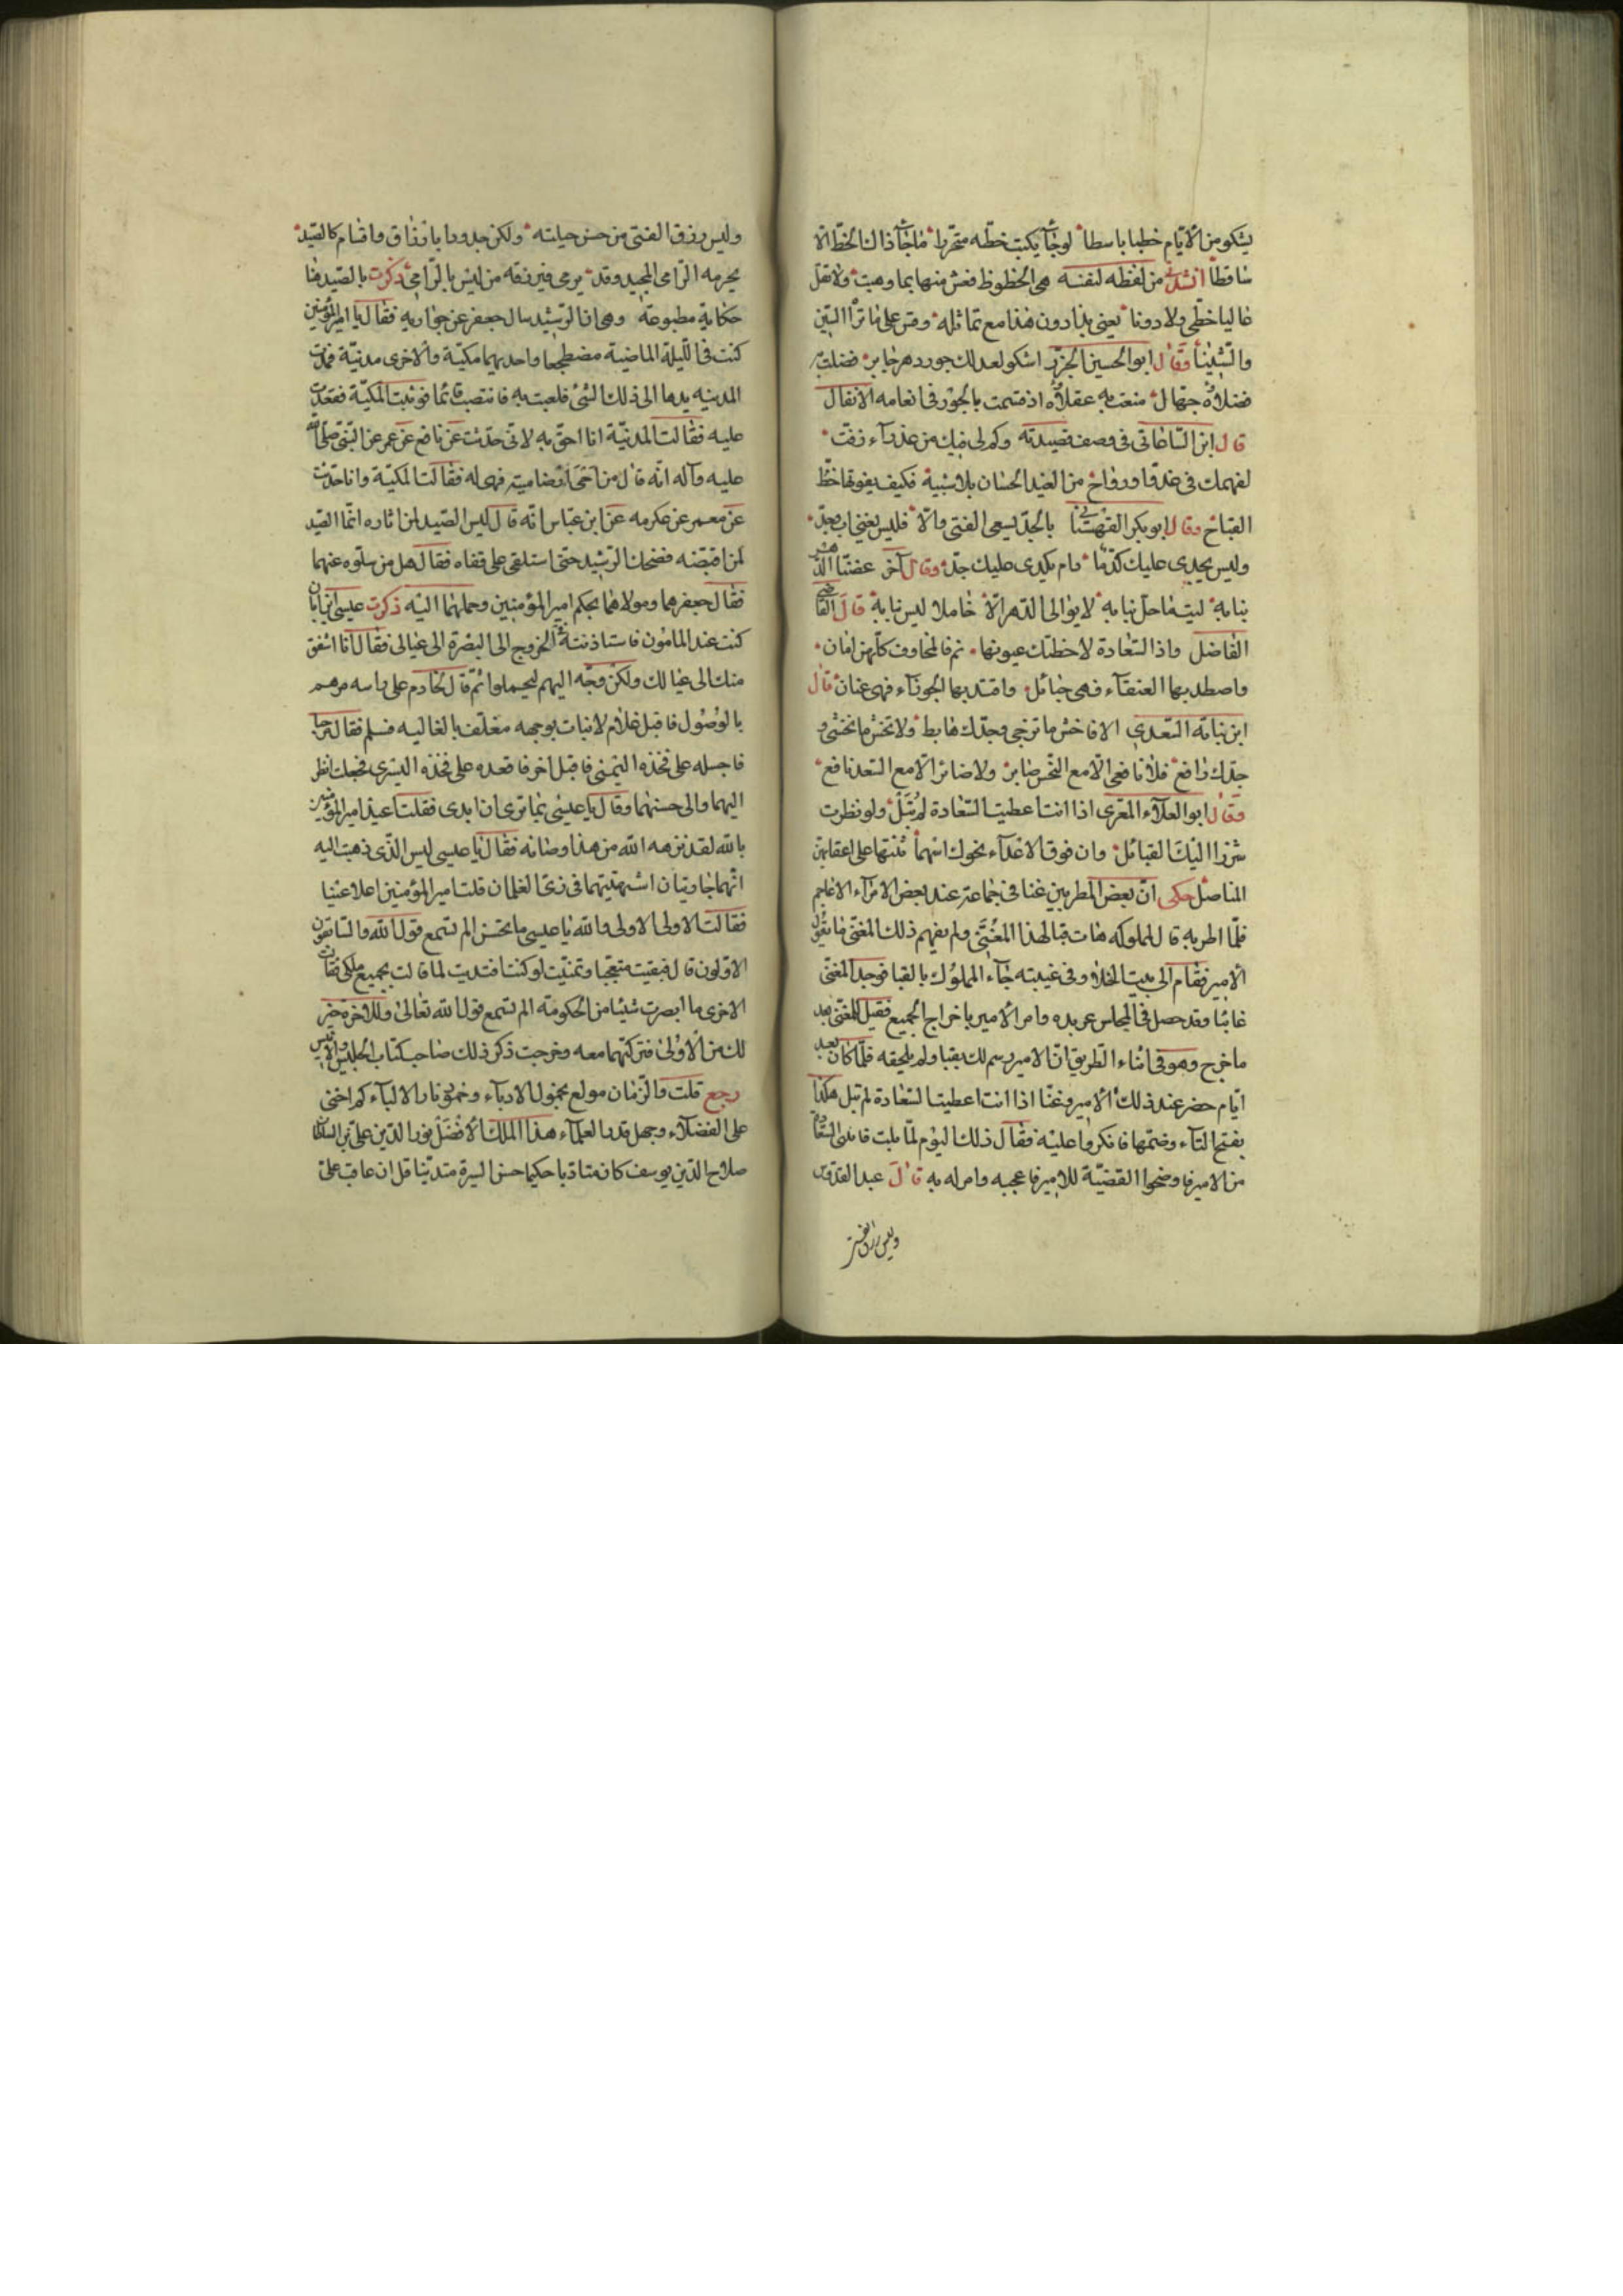 يشكو من الأيام خطبا باسطا لو جاء يكتب خطه متحررا ما جاء ذاك الخط الا
ساقطا انشدنى من لفظه لنفسه هى الحظوظ فعش منها بما وهبت ولا تقل
غاليا خطى ولا دونا يعنى بذا دون هذا مع تماثله وقس على ما ترا البين
والشينا وقال ابو الحسين الجزار اشكو لعدلك جور دهر جابر فضلت به
فضلاؤه جهال منعت به عقلاؤه اذ قسمت بالجور فى انعامه الانفال
قال ابن الساعاتى فى وصف قصيدته وكم لى فيك من عذراء زفت
لفهمك فى غدو او رواح من الغيد الحسان بلا شبيه فكيف يفوتها حظ
القباح وقال ابو بكر القهستانى بالجد يسعى الفتى والا فليس يغنى اب وجد
وليس يجدى عليك كد ما دام يكدى عليك جد وقال آخر عضنا الدهر
بنابه ليت ما حل بنابه لا يوالى الدهر الا خاملا ليس بنابه قال القاضى
الفاضل واذا السعادة لاحظتك عيونها نم فالمخاوف كلهن امان
واصطد بها العنقاء فهى حبائل واقتد بها الجوزاء فهى عنان قال
ابن نباته السعدى الا فاخش ما ترجى وجدك هابط ولا تخش ما تخشى و
جدك رافع فلا نافعى الا مع النحس ضاير ولا ضائر الا مع السعد نافع
وقال ابو العلاء المعرى اذا انت اعطيت السعادة لم تبل ولو نظرت
شزرا اليك القبائل وان فوق الاعداء نحوك اسهما ثنتها على اعقابهن
المناصل حكى ان بعض المطربين غنا فى جماعة عند بعض الامرآء الاعاجم
فلما اطربه قال لمملوكه هات قبا لهذا المغنى ولم يفهم ذلك المغنى ما يقول
الأمير فقام الى بيت الخلاء وفى غيبته جاء المملوك بالقبا فوجد المغنى
غائبا وقد حصل فى المجلس عربده وامر الأمير باخراج الجميع فقيل للمغنى بعد
ما خرج وهو فى اثناء الطريق ان الامير رسم لك بقبا ولم يلحقه فلما كان بعد
ايام حضر عند ذلك الأمير وغنا اذا انت اعطيت السعادة لم تبل هكذا
بفتح التاء وضمها فانكروا عليه فقال ذلك اليوم لما بلت فاتنى السعادة
من الامير فاوضحوا القضية للامير فاعجبه وامر له به قال عبد القدوس
وليس رزق الفتى
وليس رزق الفتى من حسن حيلته ولكن جدود بارزاق واقسام كالصيد
يحرمه الرامى المجيد وقد يرمى فيرزقه من ليس بالرامى ذكرت بالصيد هنا
حكاية مطبوعة وهى ان الرشيد سال جعفر عن جواريه فقال يا امير المؤمنين
كنت فى الليلة الماضية مضطجعا واحديهما مكية والاخرى مدنية فمدت
المدنيه يدها الى ذلك الشئ فلعبت به فانتصب قائما فوثبت المكية فقعدت
عليه فقالت المدنية انا احق به لانى حدثت عن نافع عن عمر عن النبى صلى الله
عليه وآله انه قال من احيى ارضا ميته فهى له فقالت المكية وانا حدثت
عن معمر عن عكرمه عن ابن عباس انه قال ليس الصيد لمن اثاره انما الصيد
لمن اقتضه فضحك الرشيد حتى استلقى على قفاه فقال هل من سلوه عنهما
فقال جعفر هما ومولاهما بحكم امير المؤمنين وحملهما اليه ذكرت عيسى ابن ابان
كنت عند المامون فاستاذنته فى الخروج الى البصرة الى عيالى فقال انا اشفق
منك الى عيالك ولكن وجه اليهم ليحملوا ثم قال لخادم على راسه مرهم
بالوصول فاقبل غلام لا نبات بوجهه مغلف بالغاليه فسلم فقال مرحبا
فاجسله على فخذه اليمنى فاقبل اخر فاقعده على فخذه اليسرى فجعلت انظر
اليهما والى حسنهما وقال يا عيسى بما ترى ان ابدى فقلت اعيذ امير المؤمنين
بالله لقد نزهه الله من هذا وصانه فقال يا عيسى ليس الذى ذهبت اليه
انهما جاريتان اشتهيتهما فى زى الغلمان قلت امير المؤمنين اعلا عينا
فقالت الاولى الاولى والله يا عيسى ما تحسن الم تسمع قول الله والسابقون
الاولون قال فبقيت متعجبا وتمنيت لو كنت افتديت لما قالت بجميع ملكى فقالت
الاخرى ما ابصرت شيئا من الحكومة الم تسمع قول الله تعالى وللآخرة خير
لك من الاولى فتركتهما معه وخرجت ذكر ذلك صاحب كتاب الجليس والانيس
رجع قلت والزمان مولع بخمول الادباء وخمود نار الالباء كم اخنى
على الفضلاء وجهل قدر العلماء هذا الملك الأفضل نور الدين على بن السلطان
صلاح الدين يوسف كان متادبا حكيما حسن السيرة متدينا قل ان عاقب على